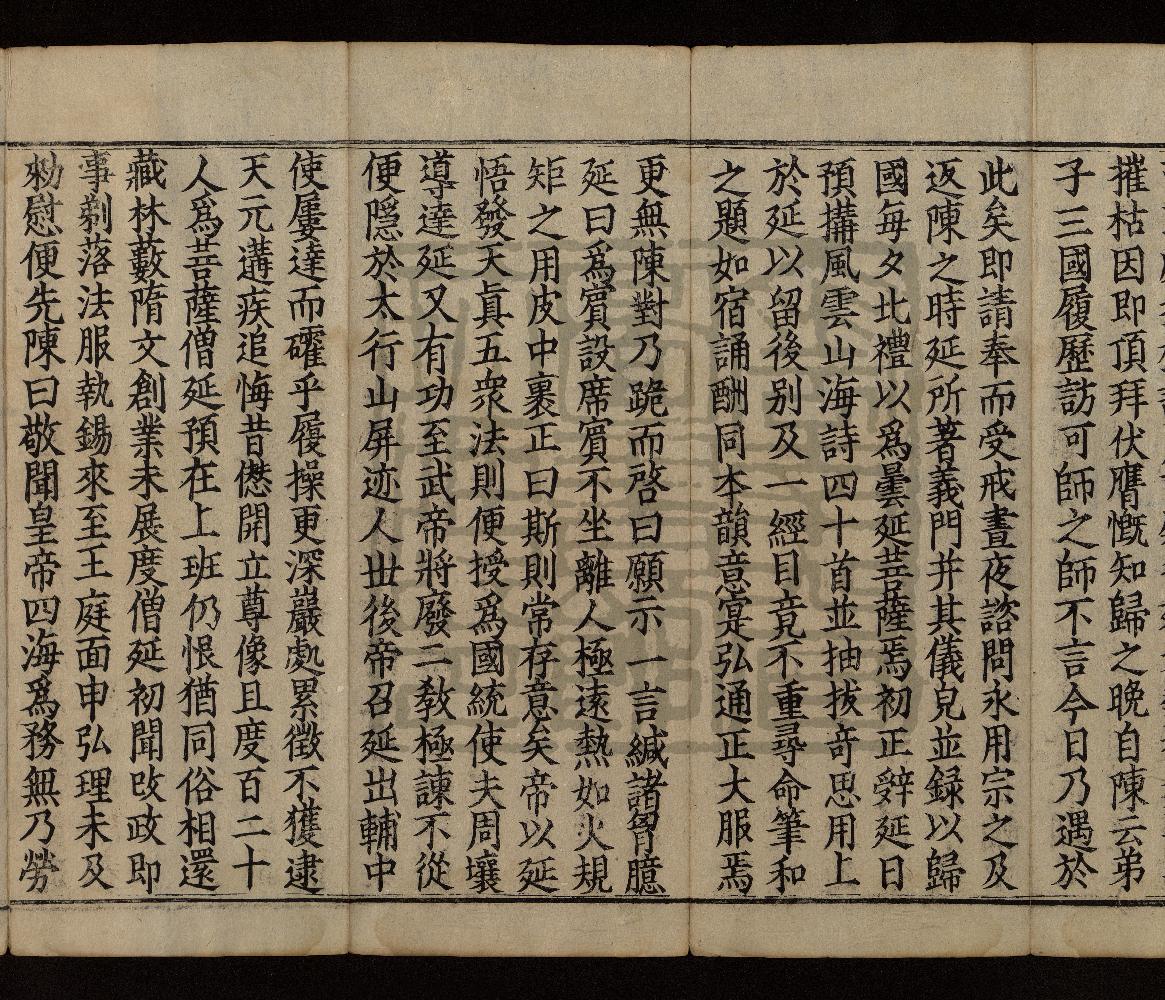 摧枯因即頂拜伏膺慨知歸之晚自陳云弟
子三國履歷訪可師之師不言今日乃遇於
此矣即請奉而受戒晝夜諮問永用宗之及
返陳之時延所著義門并其儀皃並録以歸
國每夕北禮以爲曇延菩薩焉初正辤延日
預搆風雲山海詩四十首並抽拔奇思用上
於延以留後别及一經目竟不重尋命筆和
之題如宿誦酬同本韻意寔弘通正大服焉
更無陳對乃跪而啓曰願示一言緘諸胷臆
延曰爲賓設席賓不坐離人極遠熱如火規
矩之用皮中裹正曰斯則常存意矣帝以延
悟發天真五衆法則便授爲國統使夫周壤
導達延又有功至武帝將廢二教極諫不從
便隱於太行山屏迹人丗後帝召延出輔中
使屢達而礭乎履操更深巖處累徵不獲逮
天元遘疾追悔昔𠎝開立尊像且度百二十
人爲菩薩僧延預在上班仍恨猶同俗相還
藏林藪隋文創業未展度僧延初聞改政即
事剃落法服執錫來至王庭面申弘理未及
勑慰便先陳曰敬聞皇帝四海爲務無乃勞